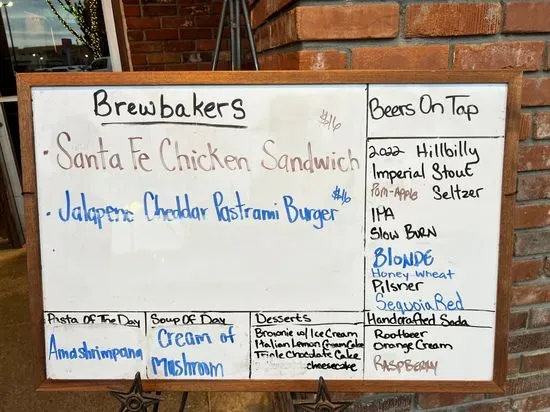 Brewbakers
$16
· Santa Fe Chicken Sandwich
$16
· Jalapeno Cheddar Pastrami Burger
Beers On Tap
2022 Hillbilly
Imperial Stout
Pom-Apple Seltzer
IPA
Slow BURN
BLONDE
Honey Wheat
Pilsner
Sequoia Red
Pasta Of The Day
Amashrimpana
Soup Of Day
Cream of
Mushroom
Desserts
Brownie w/ Ice Cream
Italian Lemon Cream Cake
Triple Chocolate Cake
cheesecake
Handcrafted Soda
Rootbeer
Orange Cream
RASPBERRY